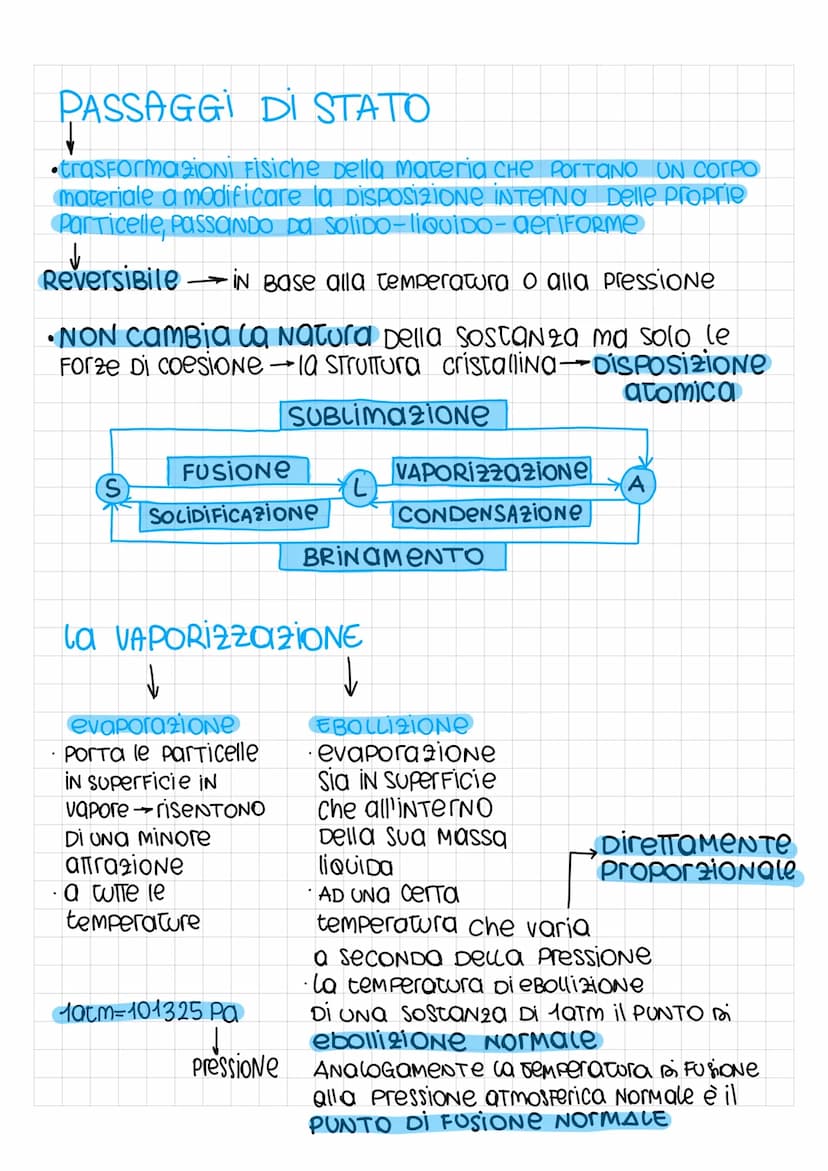 PASSAGGI DI STATO
•trasformazioni fisiche della materia che portano un corpo
materiale a modificare la disposizione interna delle proprie
particelle, passando da solido-liquido-aeriforme
Reversibile → in base alla temperatura o alla pressione
•NON cambia la natura della sostanza ma solo le
forze di coesione → la struttura cristallina → DISPOSIZIONE
atomica
SUBLIMAZIONE
FUSIONE
VAPORIZZAZIONE
S
L
A
SOLIDIFICAZIONE
CONDENSAZIONE
BRINAMENTO
la VAPORIZZAZIONE
evaporazione
• porta le particelle
in superficie in
vapore → risentono
di una minore
attrazione
• a tutte le
temperature
EBOLLIZIONE
• evaporazione
sia in superficie
che all'interno
della sua massa
liquida
• AD una certa
temperatura che varia
a seconda della pressione
Direttamente
proporzionale
• La temperatura di ebollizione
di una sostanza di 1atm il punto di
ebollizione normale
Analogamente la temperatura di fusione
alla pressione atmosferica normale è il
PUNTO DI FUSIONE NORMALE
1atm=101325 Pa
pressione